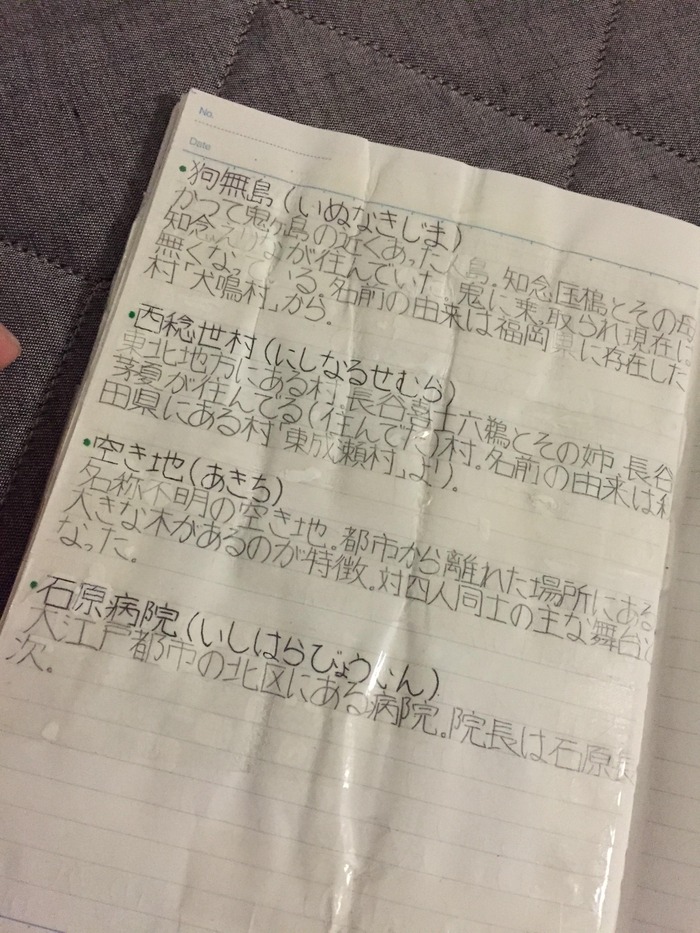 No.
Date
・狗無島(いぬなきじま)
かつて鬼ヶ島の近くあった島。知念国槝とその母
知念えりなが住んでいた。鬼に乗っ取られ現在は
無くなっている。名前の由来は福岡県に存在した
村「犬鳴村」から。
・西稔世村(にしなるせむら)
東北地方にある村。長谷喜十六鵜とその姉、長谷
芽夏が住んでる(住んでた)村。名前の由来は秋
田県にある村「東成瀬村」より。
・空き地(あきち)
名称不明の空き地。都市から離れた場所にある
大きな木があるのが特徴。対四人同士の主な舞台と
なった。
・石原病院(いしはらびょういん)
大江戸都市の北区にある病院。院長は石原
次。